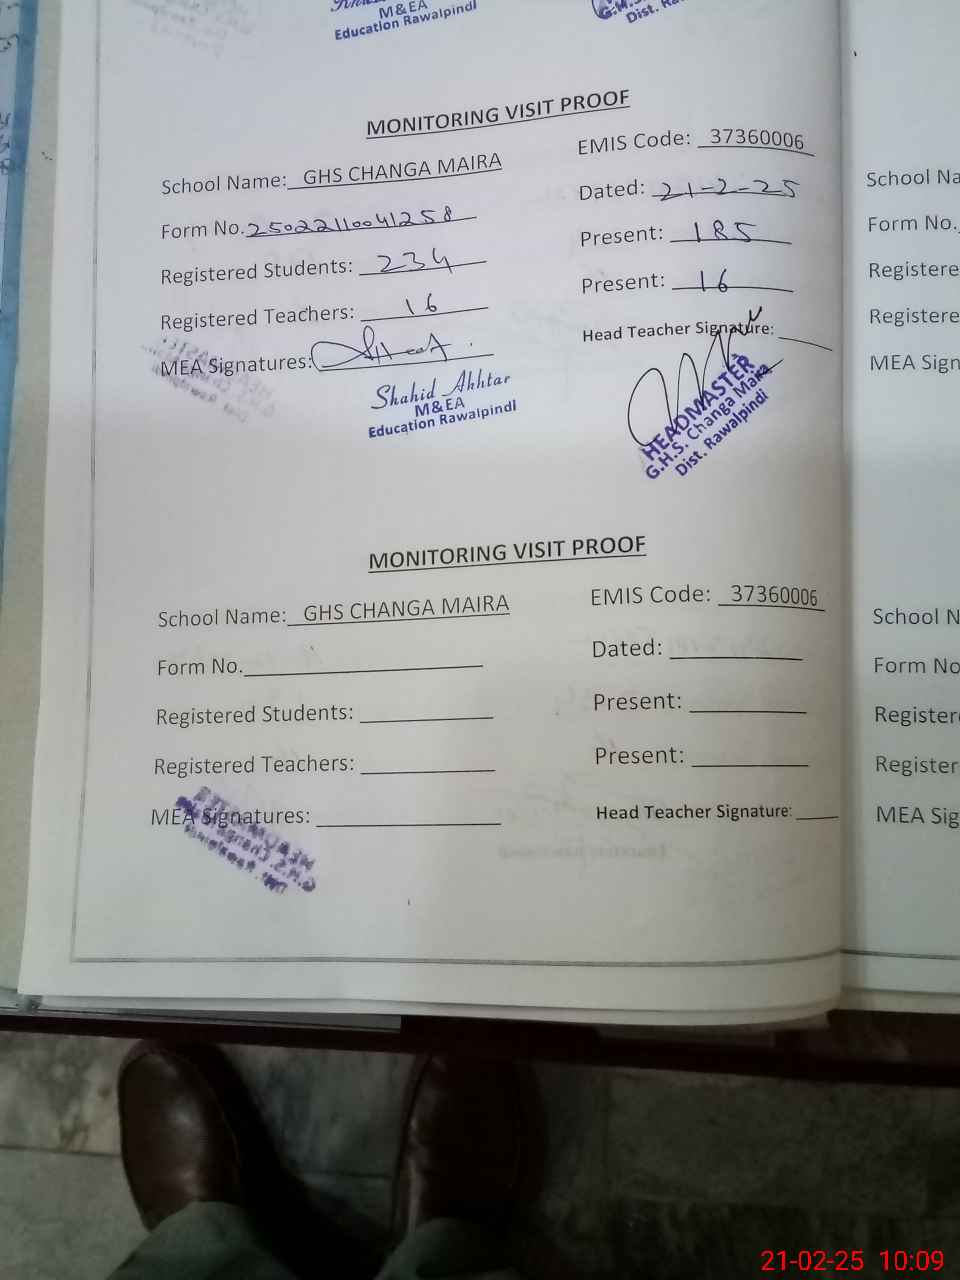 M&EA
Education Rawalpindi
Dist.
MONITORING VISIT PROOF
School Name: GHS CHANGA MAIRA
EMIS Code: 37360006
Form No. 25022110041258
Dated: 21-2-25
Registered Students: 234
Present: 185
Registered Teachers: 16
Present: 16
MEA Signatures:
Head Teacher Signature:
Shahid Akhtar
M&EA
Education Rawalpindi
HEADMASTER
G.H.S. Changa Maira
Dist. Rawalpindi
MONITORING VISIT PROOF
School Name: GHS CHANGA MAIRA
EMIS Code: 37360006
Form No.
Dated:
Registered Students:
Present:
Registered Teachers:
Present:
MEA Signatures:
Head Teacher Signature:
School Na
Form No.
Registere
Registere
MEA Sign
School N
Form No
Register
Register
MEA Sig
21-02-25 10:09